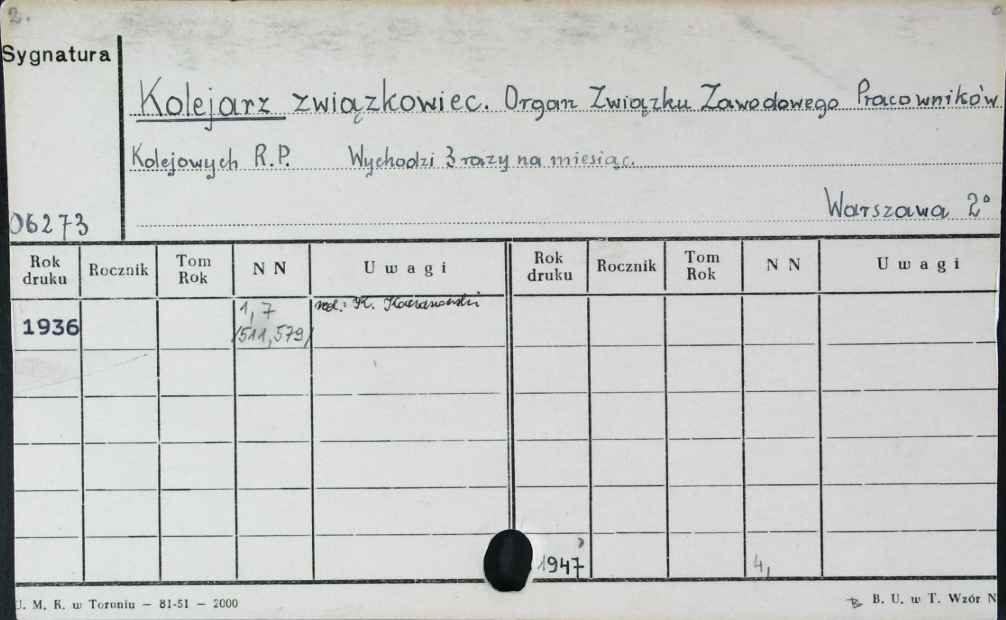 2.
Sygnatura
Kolejarz związkowiec. Organ Związku Zawodowego Pracowników
Kolejowych R.P. Wychodzi 3 razy na miesiąc.
Warszawa 2°
06273
Rok druku Rocznik Tom Rok N N Uwagi Rok druku Rocznik Tom Rok N N Uwagi
1936 1, 7 red.: K.
(511, 579)
1947 4,
U. M. K. w Toruniu – 81-51 – 2000
B. U. w T. Wzór N